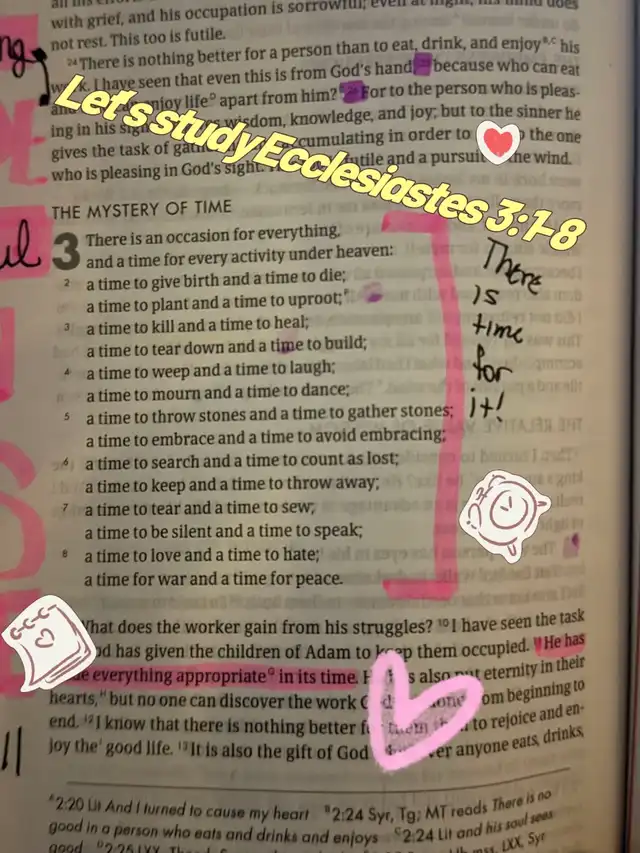 with grief, and his occupation is sorrowful; even at night, his mind does
not rest. This too is futile.
24 There is nothing better for a person than to eat, drink, and enjoy B,C his
work. I have seen that even this is from God's hand, because who can eat
and enjoy life D apart from him? For to the person who is pleas-
ing in his sight wisdom, knowledge, and joy; but to the sinner he
gives the task of cumulating in order to the one
who is pleasing in God's sight. futile and a pursuit the wind.
Let's study Ecclesiastes 3:1-8
THE MYSTERY OF TIME
3 There is an occasion for everything,
and a time for every activity under heaven:
2 a time to give birth and a time to die;
a time to plant and a time to uproot;
3 a time to kill and a time to heal;
a time to tear down and a time to build;
4 a time to weep and a time to laugh;
a time to mourn and a time to dance;
5 a time to throw stones and a time to gather stones;
a time to embrace and a time to avoid embracing;
6 a time to search and a time to count as lost;
a time to keep and a time to throw away;
7 a time to tear and a time to sew;
a time to be silent and a time to speak;
8 a time to love and a time to hate;
a time for war and a time for peace.
There
is
time
for
it!
What does the worker gain from his struggles? 10 I have seen the task
God has given the children of Adam to keep them occupied. 11 He has
everything appropriate G in its time. also put eternity in their
hearts, H but no one can discover the work done from beginning to
end. 12 I know that there is nothing better for them than to rejoice and en-
joy the I good life. 13 It is also the gift of God whenever anyone eats, drinks,
A 2:20 Lit And I turned to cause my heart B 2:24 Syr, Tg; MT reads There is no
good in a person who eats and drinks and enjoys C 2:24 Lit and his soul sees
good D 2:25 LXX, Syr